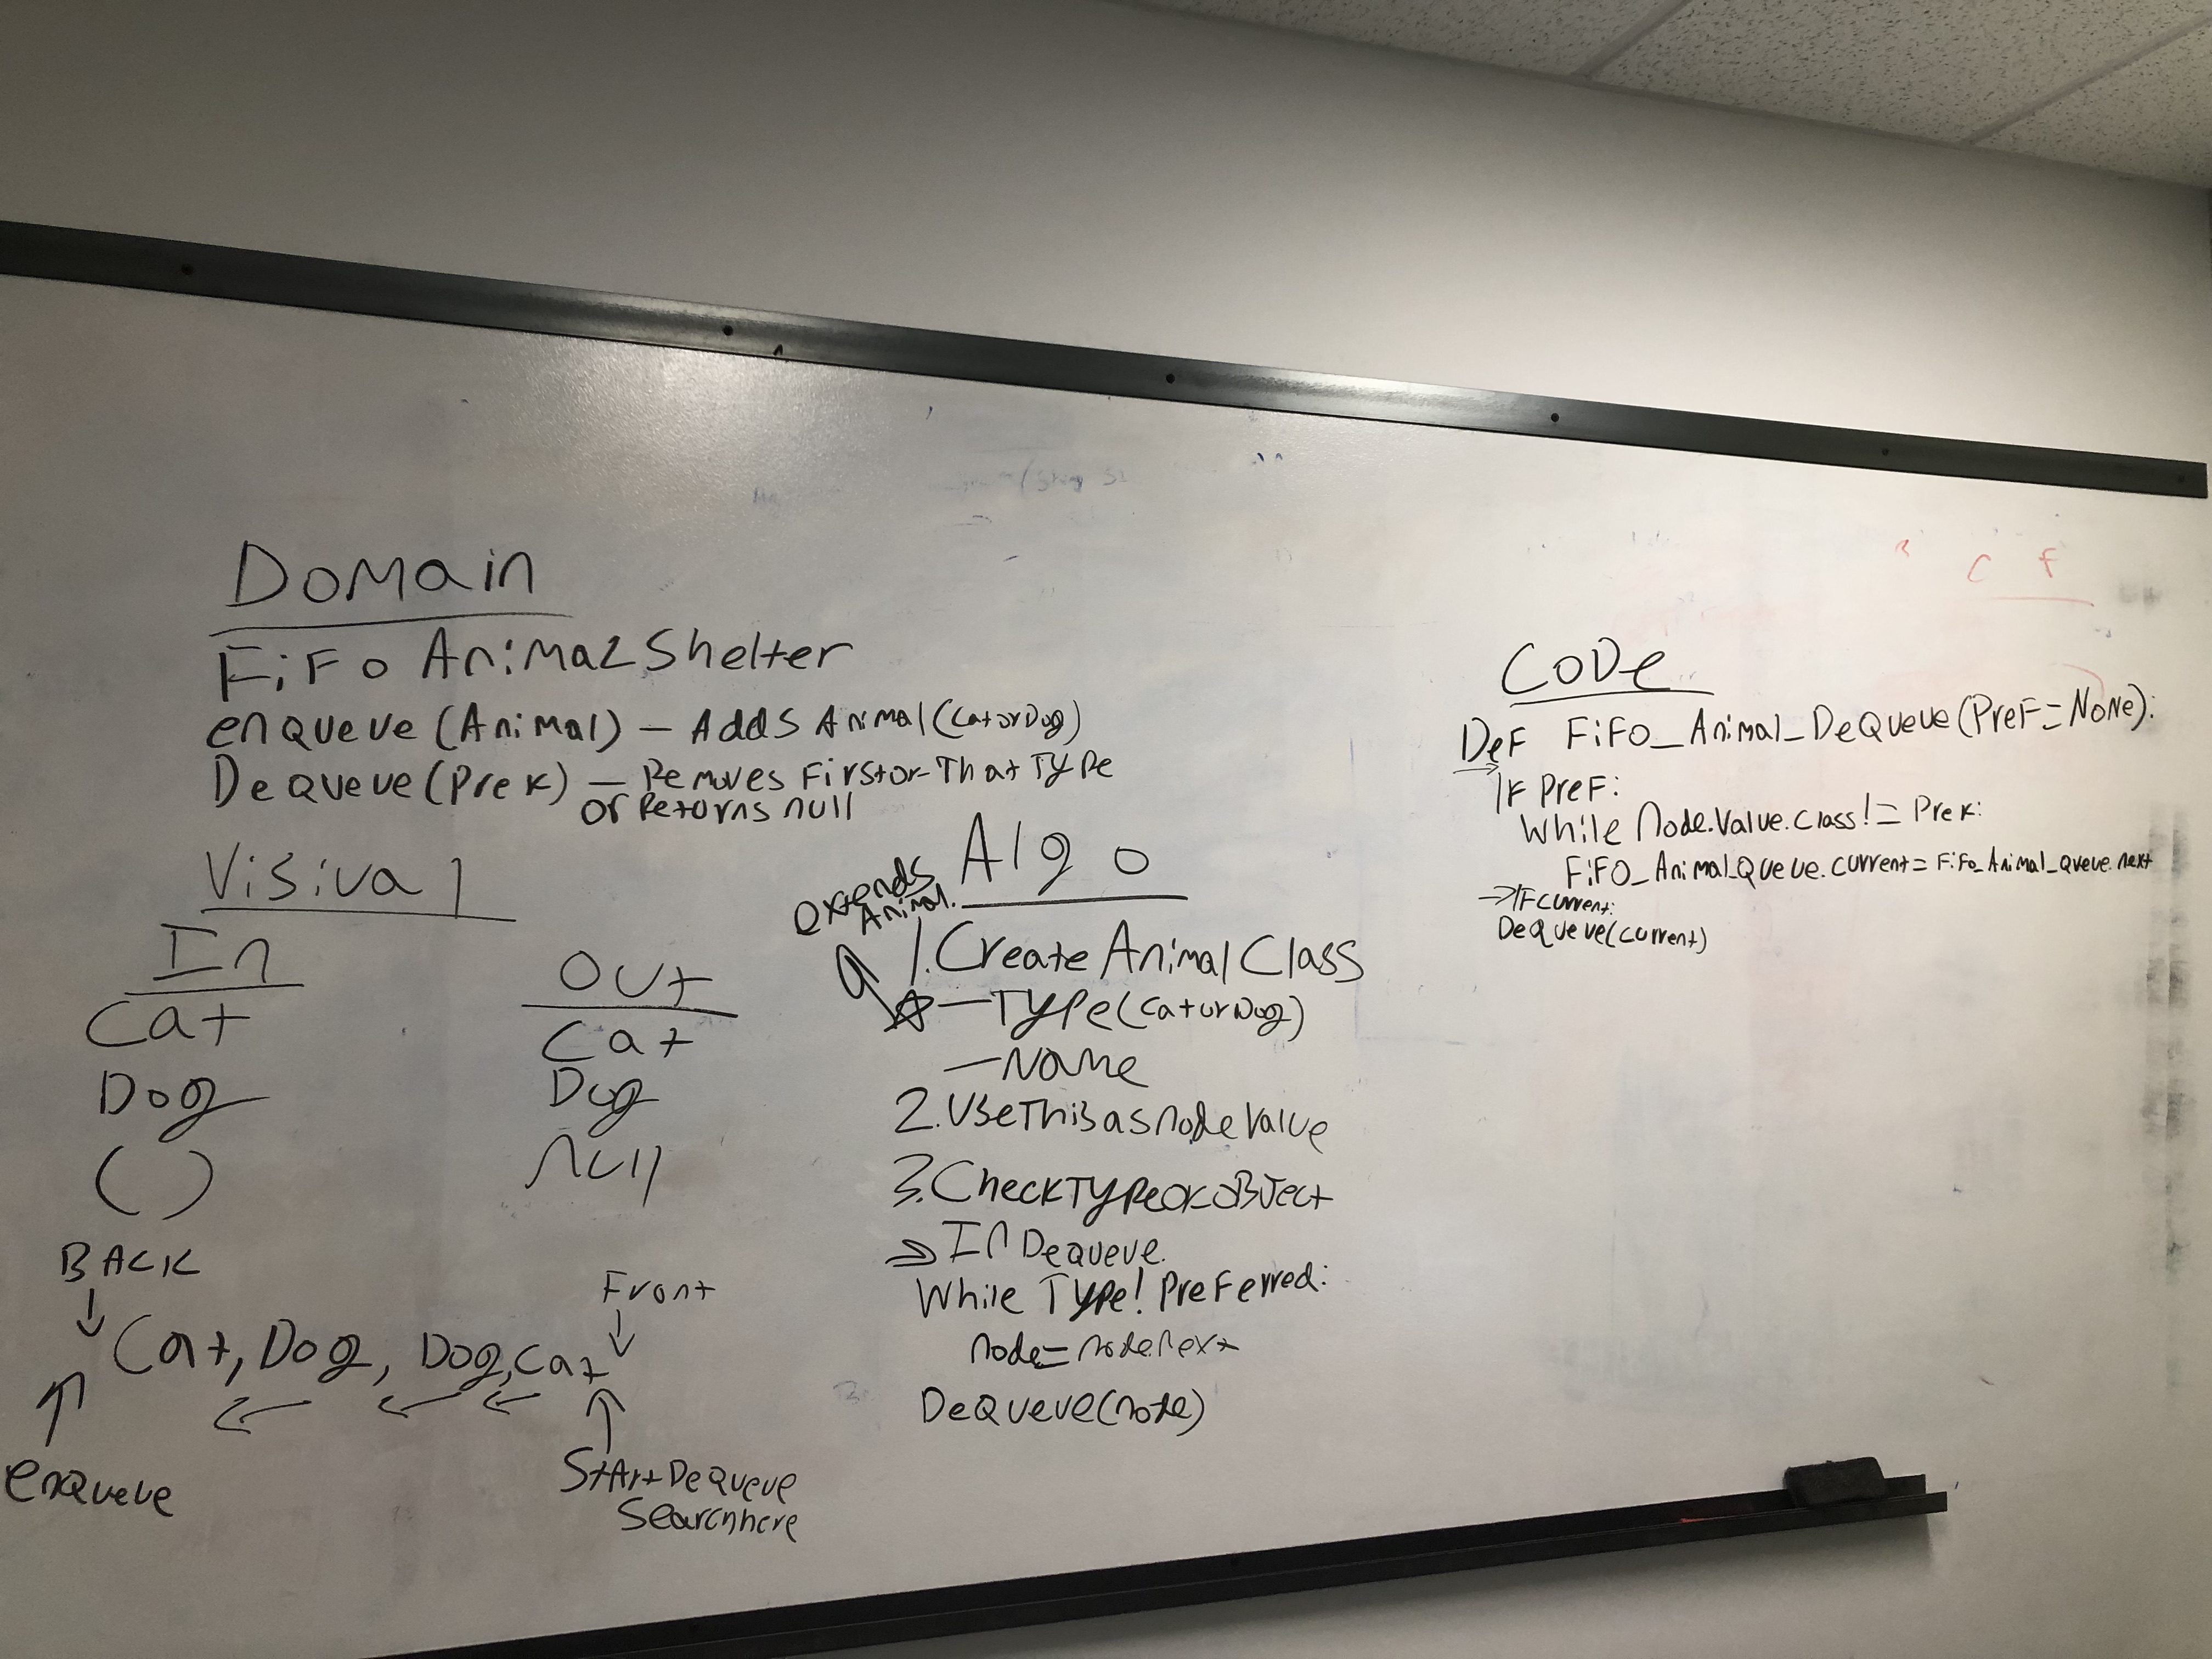 Domain
FiFo AnimalShelter
enqueue (Animal) – Adds Animal (CatorDog)
DeQueve (Pref) – Removes First or That Type
or Returns null
Visival
In
Cat
Dog
( )
Out
Cat
Dog
Null
BACK
Front
Cat, Dog, Dog, Cat
enqueve
Start DeQueve
Search here
Algo
extends
Animal.
1. Create Animal Class
– Type (Cat or Dog)
– Name
2. Use This as node Value
3. Check Type OF OBJect
⇒ In Dequeve.
While Type! Preferred:
node = node.next
DeQueve(node)
C F
Code
DeF FiFo_Animal_DeQueve (PreF = None):
IF PreF:
While Node.Value.Class != Pref:
FiFO_Animal_Queve.current = FiFo_Animal_Queve.next
→ IF current:
DeQueve(current)